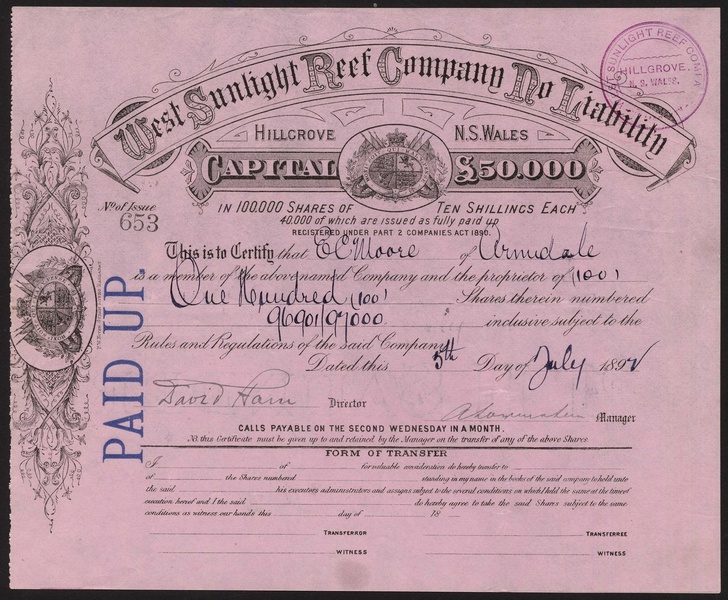 West Sunlight Reef Company No Liability
WEST SUNLIGHT REEF COMPA
HILLGROVE.
N. S. WALES.
HILLGROVE N.S. WALES
CAPITAL £50.000
IN 100.000 SHARES OF TEN SHILLINGS EACH
40.000 of which are issued as fully paid up
REGISTERED UNDER PART 2 COMPANIES ACT 1890.
No of Issue
653
This is to Certify that E C Moore of Armidale
is a member of the abovenamed Company and the proprietor of (100)
One Hundred (100) Shares therein numbered
96901/97000 inclusive subject to the
Rules and Regulations of the said Company
Dated this 5th Day of July 1892
PAID UP.
David Ham Director
Manager
CALLS PAYABLE ON THE SECOND WEDNESDAY IN A MONTH.
NB. this Certificate must be given up to and retained by the Manager on the transfer of any of the above Shares
FORM OF TRANSFER
I of for valuable consideration do hereby transfer to
of the Shares numbered standing in my name in the books of the said company to hold unto
the said his executors administrators and assigns subject to the several conditions on which I held the same at the time of
execution hereof and I the said do hereby agree to take the said Shares subject to the same
conditions as witness our hands this day of 18
TRANSFERROR TRANSFEREE
WITNESS WITNESS